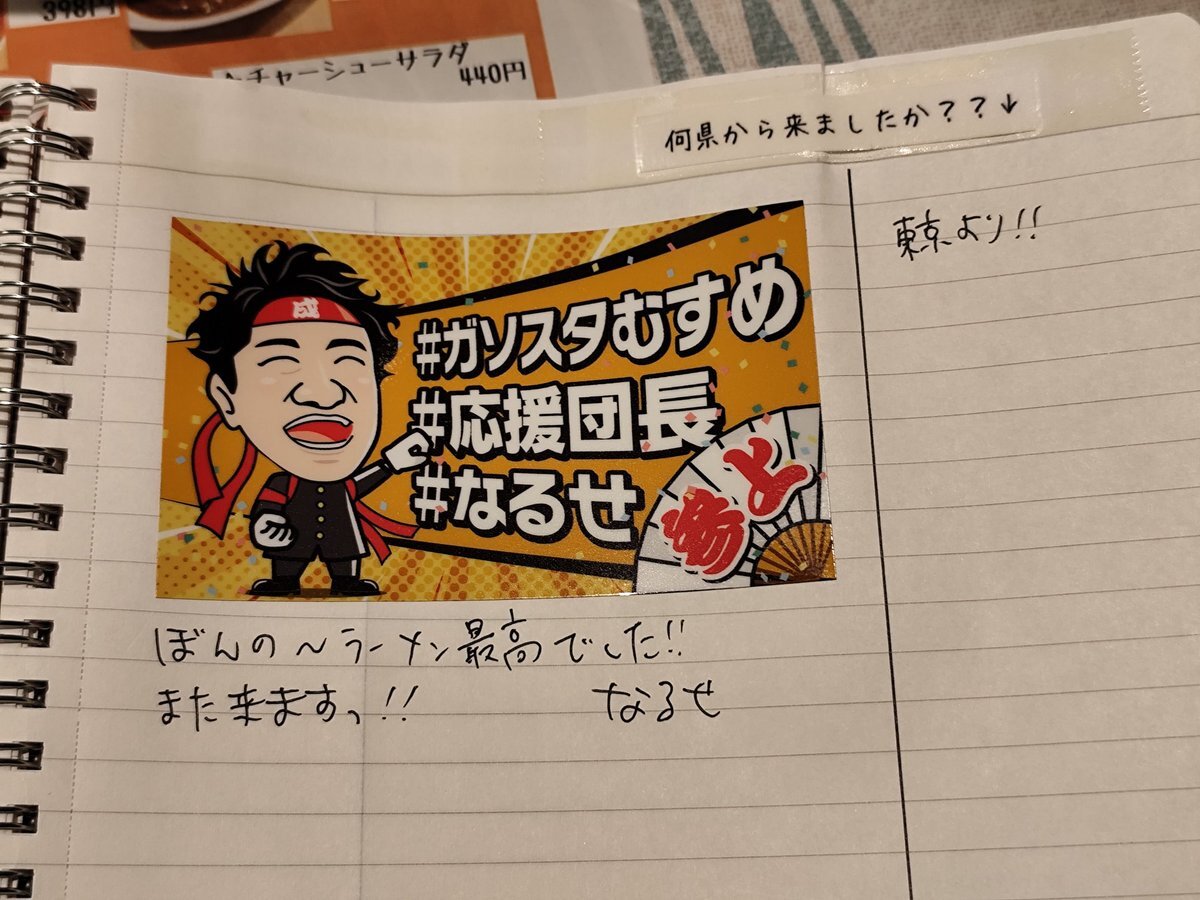 398円
チャーシューサラダ
440円
何県から来ましたか??↓
東京より!!
成
#ガソスタむすめ
#応援団長
#なるせ
参上
ぼんの〜ラーメン最高でした!!
また来ますっ!!
なるせ